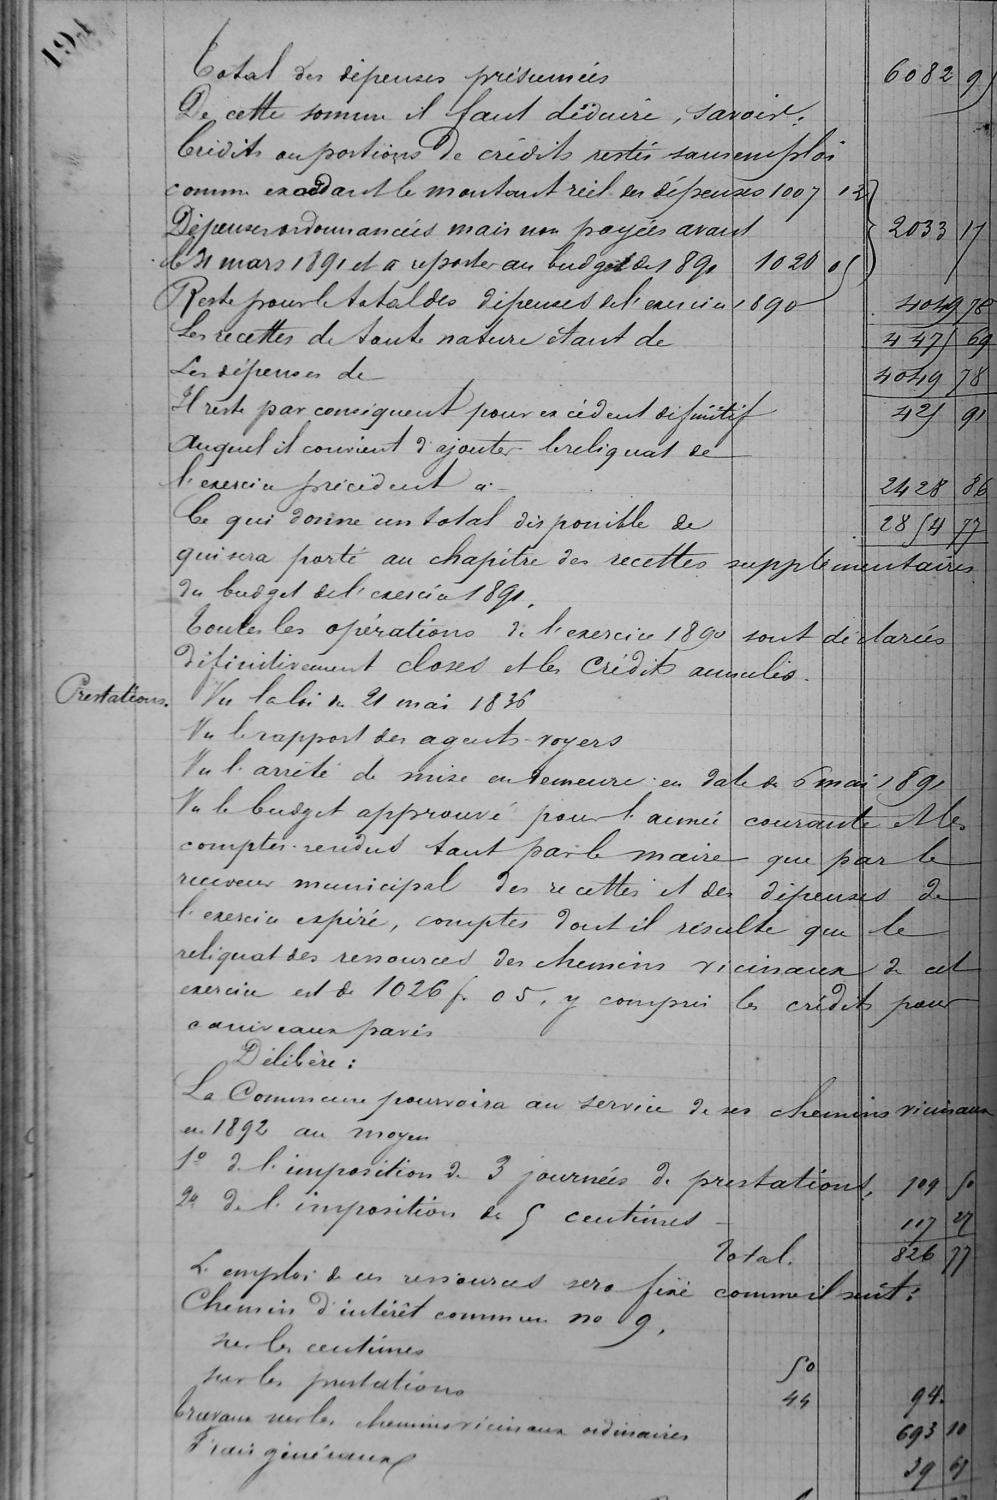 194
Total des dépenses présumées 6082 95
De cette somme il faut déduire, savoir:
Crédits ou portions de crédits restés sans emploi
comme excédant le montant réel des dépenses 1007 12
Dépenses ordonnancées mais non payées avant 2033 17
le 31 mars 1891 et à reporter au budget de 1891 1020 05
Reste pour le total des dépenses de l'exercice 1890 4049 78
Les recettes de toute nature étant de 4475 69
Les dépenses de 4049 78
Il reste par conséquent pour excédent définitif 425 91
auquel il convient d'ajouter le reliquat de
l'exercice précédent à 2428 86
Ce qui donne un total disponible de 2854 77
qui sera porté au chapitre des recettes supplémentaires
du budget de l'exercice 1891.
Toutes les opérations de l'exercice 1890 sont déclarées
définitivement closes et les crédits annulés.
Prestations. Vu la loi du 21 mai 1836
Vu le rapport des agents-voyers
Vu l'arrêté de mise en demeure en date du 6 mai 1891
Vu le budget approuvé pour l'année courante et les
comptes-rendus tant par le maire que par le
receveur municipal des recettes et des dépenses de
l'exercice expiré, comptes dont il résulte que le
reliquat des ressources des chemins vicinaux de cet
exercice est de 1026 f. 05, y compris les crédits pour
caniveaux pavés
Délibère:
La Commune pourvoira au service de ses chemins vicinaux
en 1892 au moyen
1º de l'imposition de 3 journées de prestations, 709 50
2º de l'imposition de 5 centimes 117 27
Total. 826 77
L'emploi de ces ressources sera fixé comme il suit:
Chemin d'intérêt commun no 9.
sur les centimes 50
sur les prestations 44 94
Travaux sur les chemins vicinaux ordinaires 693 10
Frais généraux 39 67